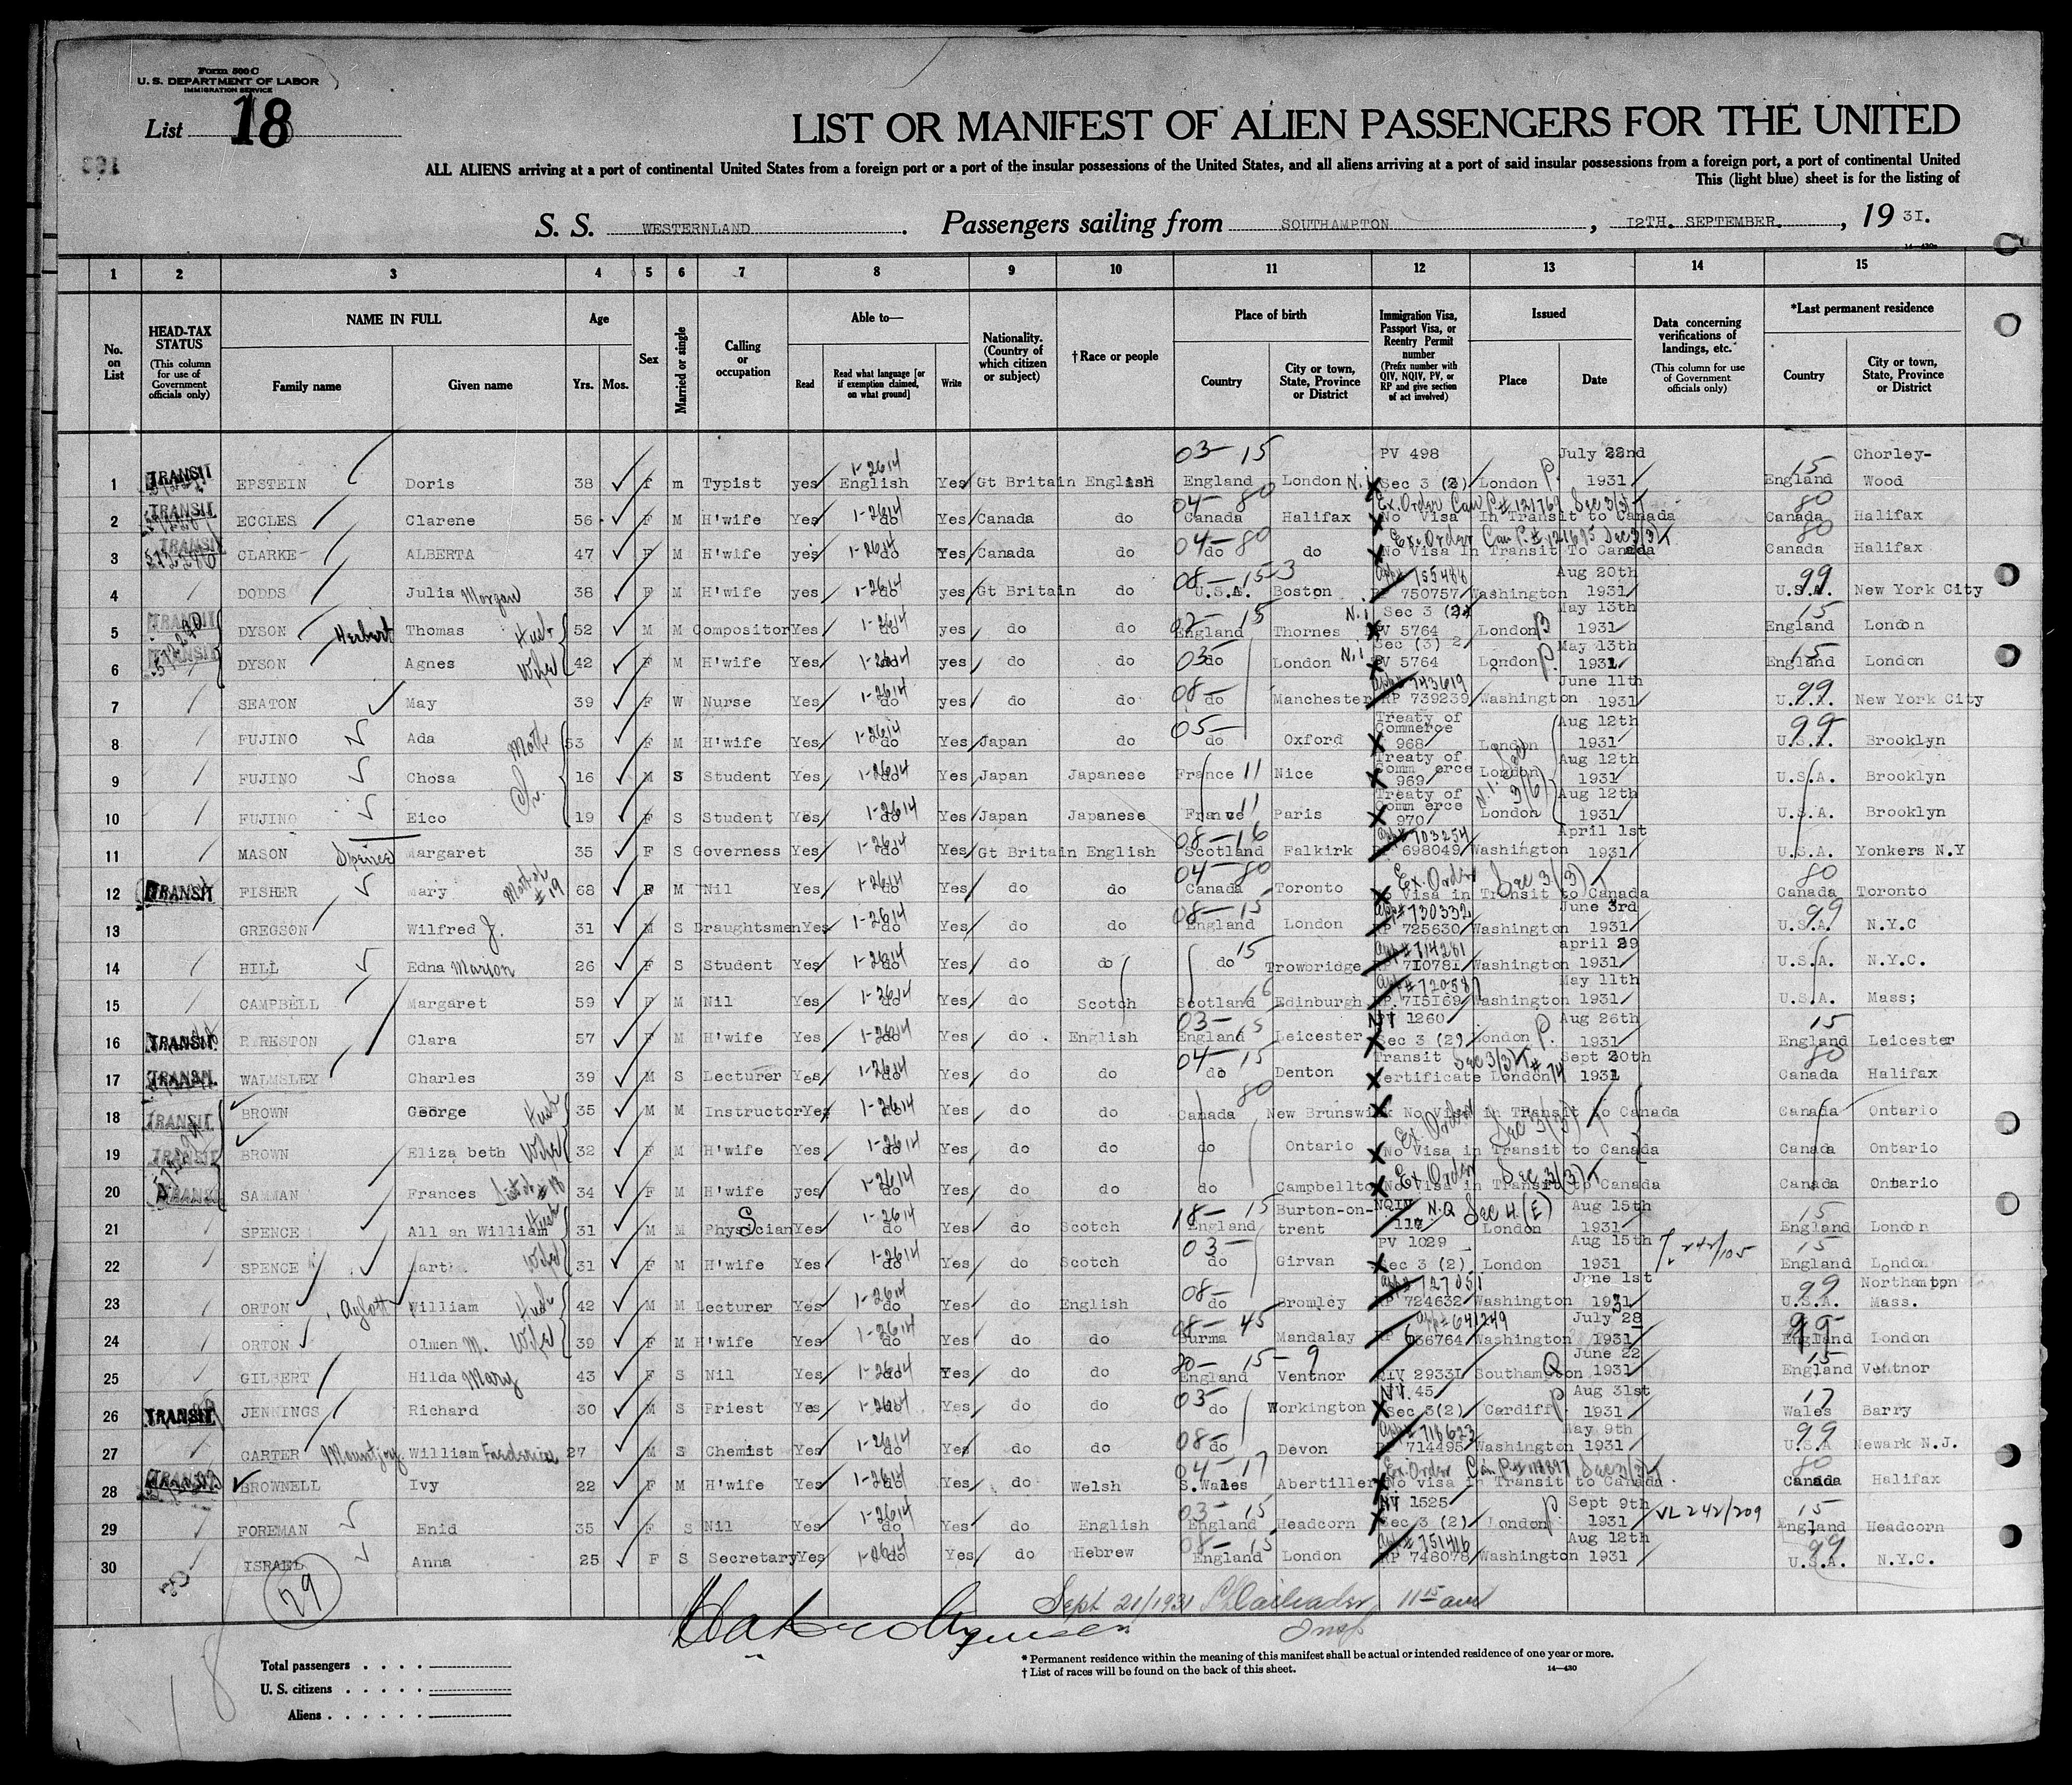 Form 500 C
U. S. DEPARTMENT OF LABOR
IMMIGRATION SERVICE
List 18
LIST OR MANIFEST OF ALIEN PASSENGERS FOR THE UNITED
ALL ALIENS arriving at a port of continental United States from a foreign port or a port of the insular possessions of the United States, and all aliens arriving at a port of said insular possessions from a foreign port, a port of continental United
This (light blue) sheet is for the listing of
S. S. WESTERNLAND. Passengers sailing from SOUTHAMPTON, 12TH. SEPTEMBER., 19 31.
14—430
1 2 3 4 5 6 7 8 9 10 11 12 13 14 15
No. on List
HEAD-TAX STATUS (This column for use of Government officials only)
NAME IN FULL
Family name Given name
Age
Yrs. Mos.
Sex
Married or single
Calling or occupation
Able to—
Read Read what language [or if exemption claimed, on what ground] Write
Nationality. (Country of which citizen or subject)
† Race or people
Place of birth
Country City or town, State, Province or District
Immigration Visa, Passport Visa, or Reentry Permit number (Prefix number with QIV, NQIV, PV, or RP and give section of act involved)
Issued
Place Date
Data concerning verifications of landings, etc. (This column for use of Government officials only)
*Last permanent residence
Country City or town, State, Province or District
1 TRANSIT EPSTEIN Doris 38 F m Typist yes 1-2614 English Yes Gt Britain English 03-15 England London N.i PV 498 Sec 3 (2) London P. July 22nd 1931 15 England Chorley-Wood
2 TRANSIT ECCLES Clarene 56 F M H'wife Yes 1-2614 do Yes Canada do 04-80 Canada Halifax Ex. Order Can P# 121769 Sec 3(3)T No Visa In Transit to Canada 80 Canada Halifax
3 TRANSIT CLARKE ALBERTA 47 F M H'wife yes 1-2614 do Yes Canada do 04-80 do do Ex. Order Can P.# 121695 Sec 3(3)T No Visa In Transit To Canada 80 Canada Halifax
4 DODDS Julia Morgan 38 F M H'wife yes 1-2614 do yes Gt Britain do 08-15-3 U.S.A. Boston 755486 750757 Washington Aug 20th 1931 99 U.S.A. New York City
5 TRANSIT DYSON Herbert Thomas Husb 52 M M Compositor Yes 1-2614 do yes do do 15 England Thornes N.i Sec 3 (2) PV 5764 London May 13th 1931 15 England London
6 TRANSIT DYSON Agnes Wife 42 F M H'wife Yes 1-2614 do yes do do 03 do London N.i Sec (3) 2 PV 5764 London P. May 13th 1931 15 England London
7 SEATON May 39 F W Nurse Yes 1-2614 do yes do do 08- do Manchester 743619 RP 739239 Washington June 11th 1931 99 U.S.A. New York City
8 FUJINO Ada Moth 53 F M H'wife Yes 1-2614 do Yes Japan do 05- do Oxford Treaty of Commerce 968 London Aug 12th 1931 99 U.S.A. Brooklyn
9 FUJINO Chosa Ch. 16 M S Student Yes 1-2614 do Yes Japan Japanese France 11 Nice Treaty of Comm erce 969 London Aug 12th 1931 U.S.A. Brooklyn
10 FUJINO Eico 19 F S Student Yes 1-2614 do Yes Japan Japanese France 11 Paris Treaty of Comm erce 970 London 3(6) Aug 12th 1931 U.S.A. Brooklyn
11 MASON Spence Margaret 35 F S Governess Yes 1-2614 do Yes Gt Britain English 08-16 Scotland Falkirk 703254 698049 Washington April 1st 1931 U.S.A. Yonkers N.Y
12 TRANSIT FISHER Mary Moth of #19 68 F M Nil Yes 1-2614 do Yes do do 04-80 Canada Toronto Ex. Order Sec 3(3)T No Visa in Transit to Canada 80 Canada Toronto
13 GREGSON Wilfred J. 31 M S Draughtsmen Yes 1-2614 do Yes do do 08-15 England London 730332 RP 725630 Washington June 3rd 1931 99 U.S.A. N.Y.C
14 HILL Edna Marion 26 F S Student Yes 1-2614 do Yes do do 15 do Trowbridge 714261 RP 710781 Washington april 29 1931 U.S.A. N.Y.C.
15 CAMPBELL Margaret 59 F M Nil Yes 1-2614 do Yes do Scotch Scotland Edinburgh 720587 RP. 715169 Washington May 11th 1931 U.S.A. Mass;
16 TRANSIT RRESTON Clara 57 F M H'wife Yes 1-2614 do Yes do English 03-15 England Leicester PV 1260 Sec 3 (2) London P. Aug 26th 1931 15 England Leicester
17 TRANSIT WALMSLEY Charles 39 M S Lecturer Yes 1-2614 do Yes do do 04-15 do Denton Transit Sec 3(3)T Certificate London #74 Sept 20th 1931 80 Canada Halifax
18 TRANSIT BROWN George Husb 35 M M Instructor Yes 1-2614 do Yes do do 80 Canada New Brunswik No Visa in Transit to Canada Canada Ontario
19 TRANSIT BROWN Eliza beth Wife 32 F M H'wife Yes 1-2614 do Yes do do do Ontario Ex. Order Sec 3(3) No Visa in Transit to Canada Canada Ontario
20 TRANSIT SAMMAN Frances Sist of #18 34 F M H'wife yes 1-2614 do Yes do do do Campbellto Ex Order Sec 3(3)T No Visa in Transit to Canada Canada Ontario
21 SPENCE All an William Husb 31 M M Physician S Yes 1-2614 do Yes do Scotch 18-15 England Burton-on-trent NQIV N.Q Sec 4.(E) London Aug 15th 1931 15 England London
22 SPENCE Wife 31 F M H'wife Yes 1-2614 do Yes do Scotch 03- do Girvan PV 1029 Sec 3 (2) London Aug 15th 1931 242/105 15 England London
23 ORTON Aylott William Husb 42 M M Lecturer Yes 1-2614 do Yes do English 08- do Bromley 727051 RP 724632 Washington June 1st 1931 99 U.S.A. Northampton Mass.
24 ORTON Olmen M. Wife 39 F M H'wife Yes 1-2614 do Yes do do 08-45 Burma Mandalay 641249 RP 636764 Washington July 28 1931 99 England London
25 GILBERT Hilda Mary 43 F S Nil Yes 1-2614 do Yes do do 15-9 England Ventnor QIV 29331 Southampton Q June 22 1931 15 England Ventnor
26 TRANSIT JENNINGS Richard 30 M S Priest Yes 1-2614 do Yes do do 03 do Workington 45 Sec 3(2) Cardiff P Aug 31st 1931 17 Wales Barry
27 CARTER Mountjoy William Frederick 27 M S Chemist Yes 1-2614 do Yes do do 08- do Devon 714495 Washington May 9th 1931 99 U.S.A Newark N.J.
28 TRANSIT BROWNELL Ivy 22 F M H'wife Yes 1-2614 do Yes do Welsh 04-17 S.Wales Abertiller Ex. Order Sec 3(3)T No visa in Transit to Canada 80 Canada Halifax
29 FOREMAN Enid 35 F S Nil Yes 1-2614 do Yes do English 03-15 England Headcorn 1525 Sec 3 (2) London P Sept 9th 1931 VL 242/209 15 England Headcorn
30 ISRAEL Anna 25 F S Secretary Yes 1-2614 do Yes do Hebrew 08-15 England London 751406 RP 748078 Washington Aug 12th 1931 99 U.S.A. N.Y.C.
29
Sept 21/1931 11 15 am
Insp
Total passengers
U. S. citizens
Aliens
* Permanent residence within the meaning of this manifest shall be actual or intended residence of one year or more.
† List of races will be found on the back of this sheet. 14—430
18